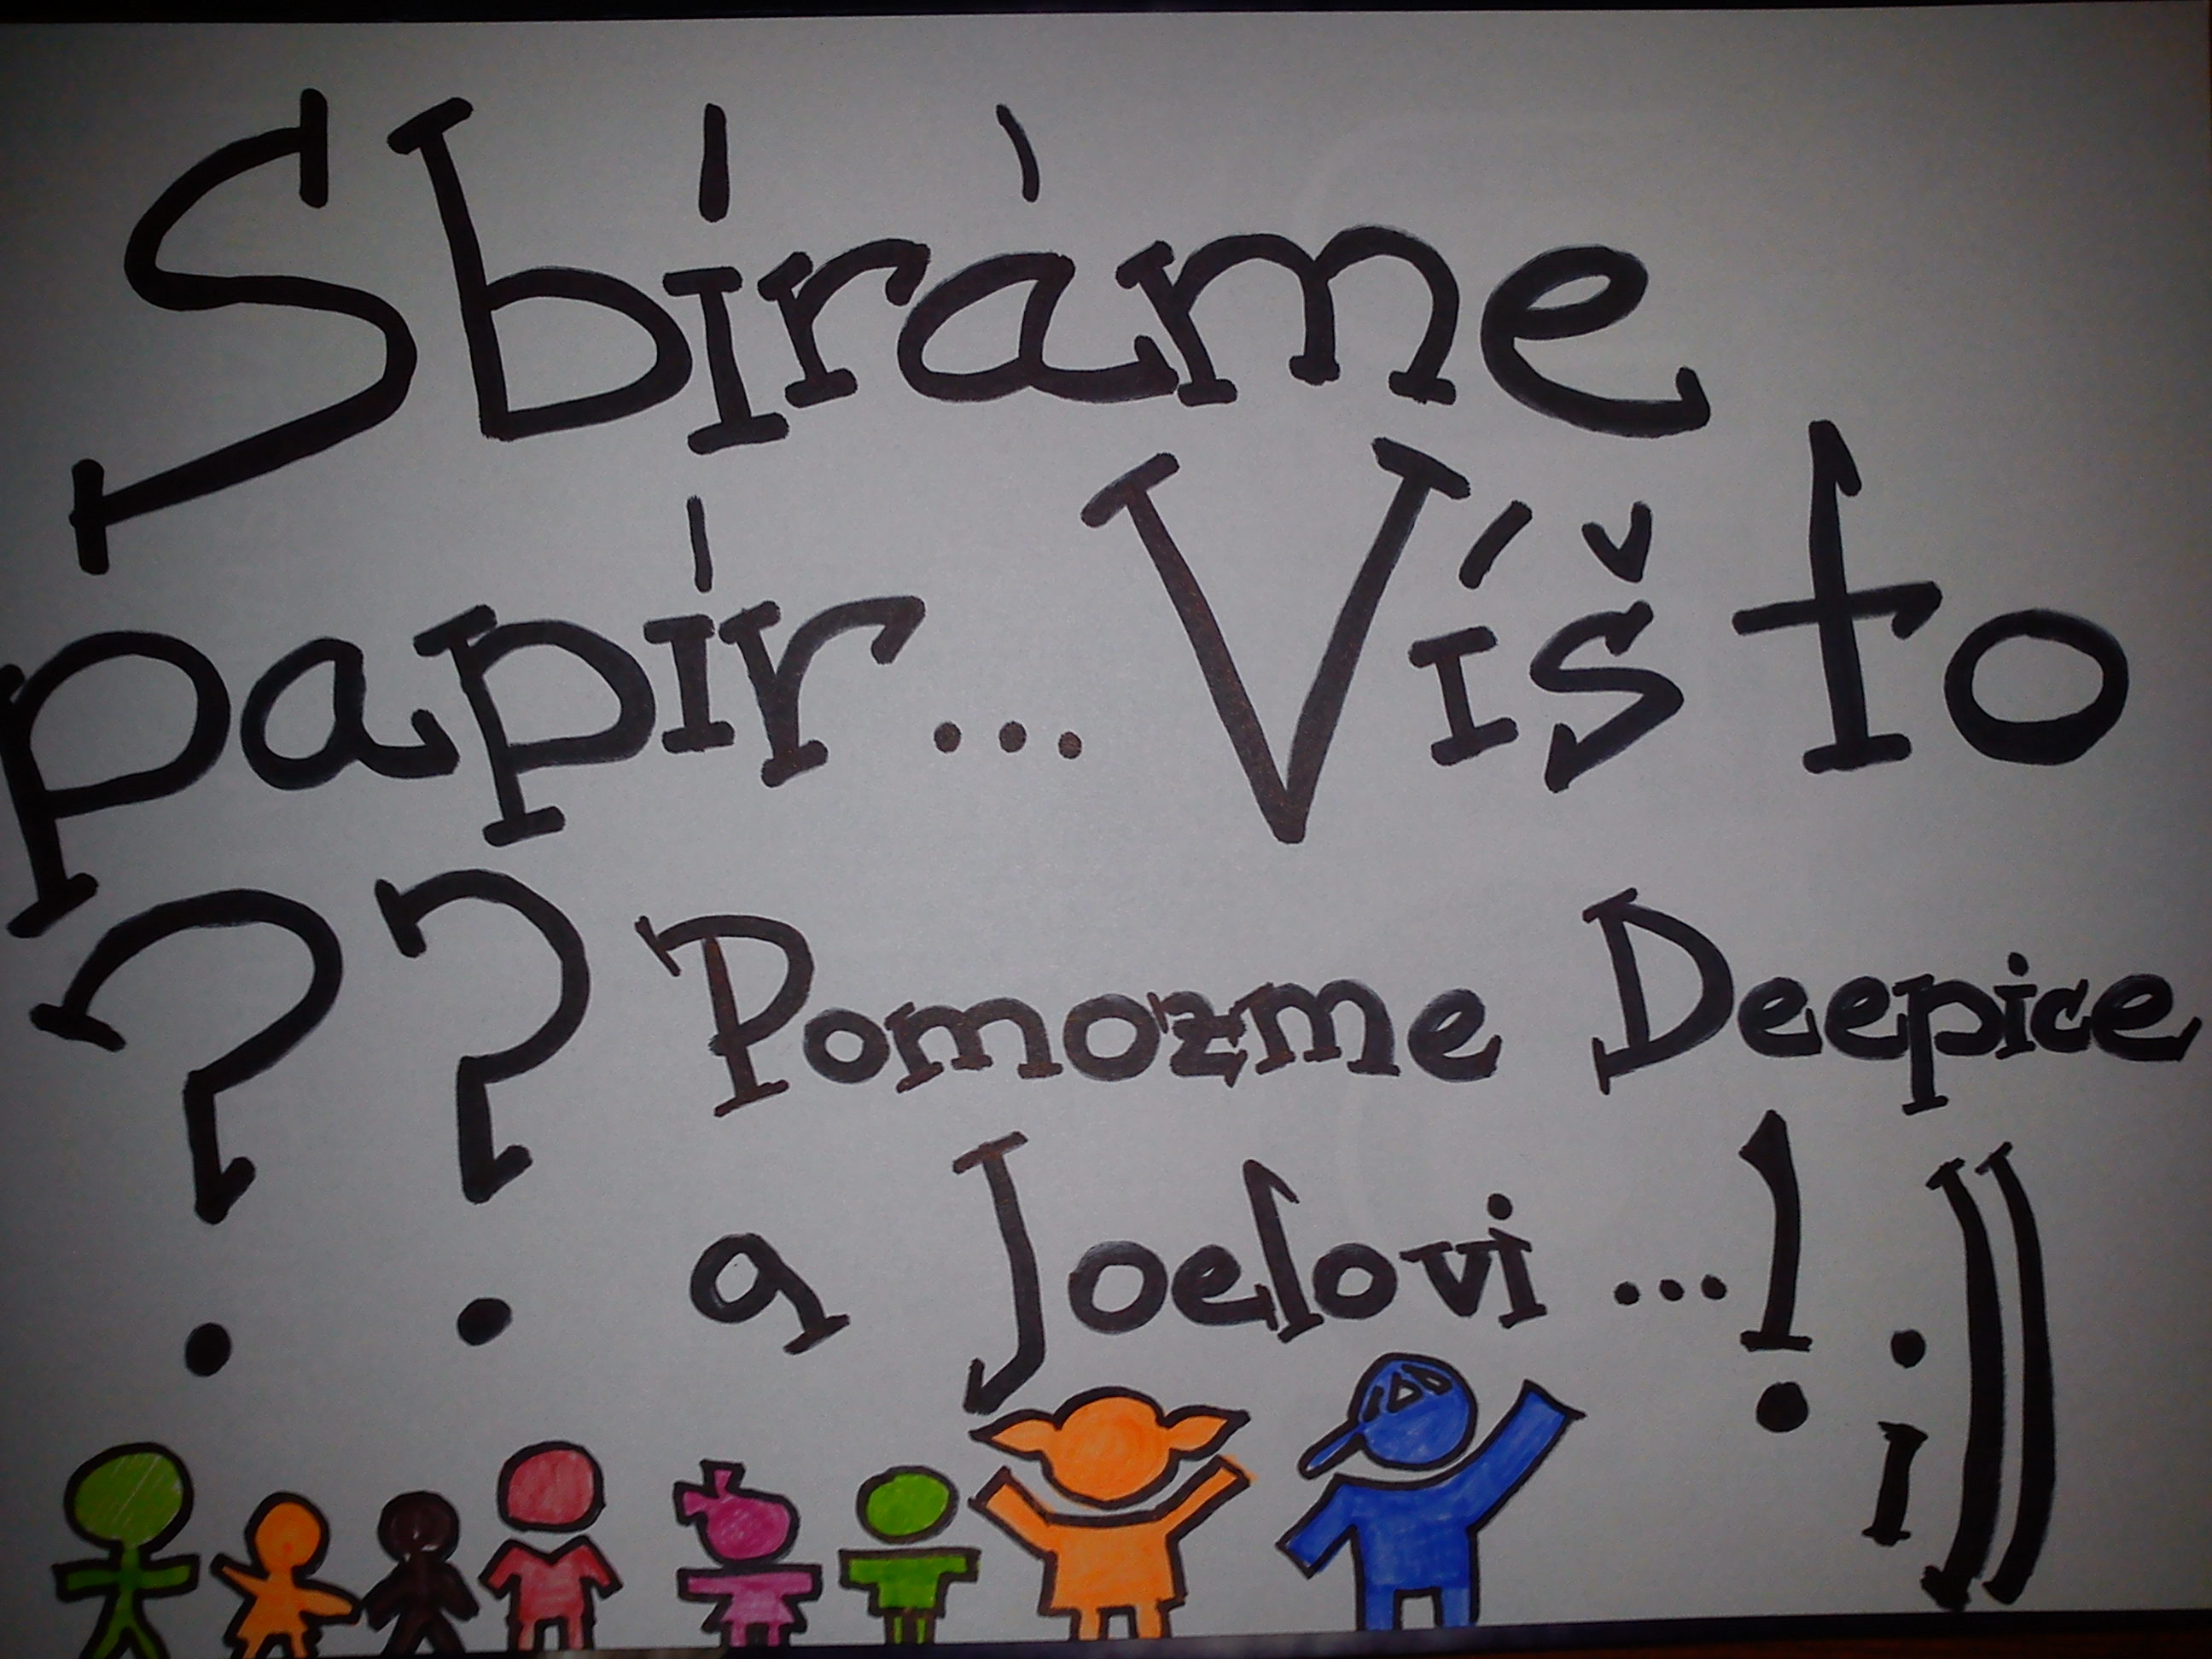 Sbíráme
papír... Víš to
?? Pomozme Deepice
a Joelovi ...! ;))